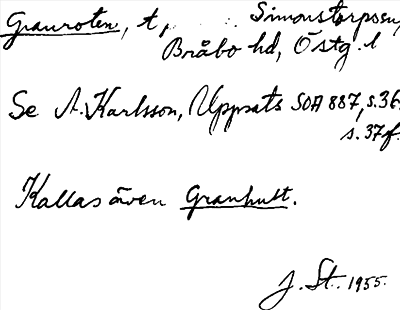 Granroten, t, Simonstorpssn,
Bråbo hd, Östg. l
Se A. Karlsson, Uppsats SOA 887, s. 36.
s. 37f.
Kallas även Granhult.
J. St. 1955.